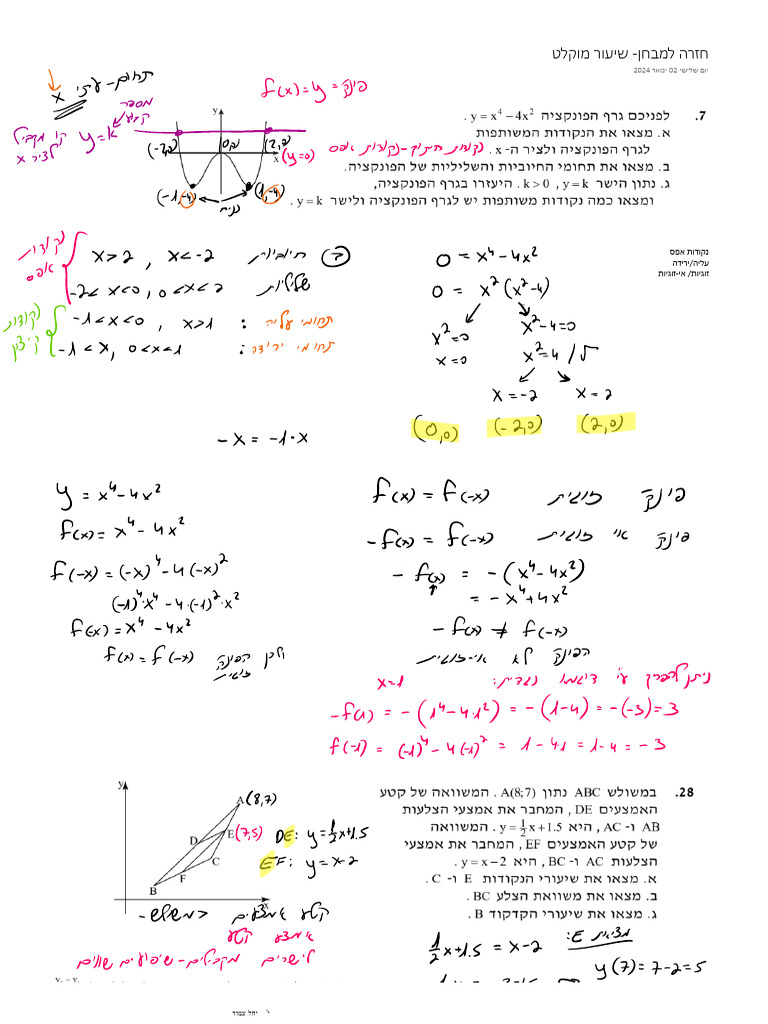 חזרה למבחן- שיעור מוקלט
יום שלישי 02 ינואר 2024
תחום - ערכי x
f(x) = y = פונק
.7 לפניכם גרף הפונקציה y = x⁴ − 4x² .
א. מצאו את הנקודות המשותפות
לגרף הפונקציה ולציר ה- x . נקודות חיתוך - נקודות אפס
(y=0)
ב. מצאו את תחומי החיוביות והשליליות של הפונקציה.
ג. נתון הישר y = k , k > 0 . היעזרו בגרף הפונקציה,
ומצאו כמה נקודות משותפות יש לגרף הפונקציה ולישר y = k .
מספר
קבוע
y=k
קו מקביל
לציר x
y
x
(-2,0) (0,0) (2,0)
(-1,-4) (1,-4)
נקודות אפס
עליה/ירידה
זוגיות/ אי-זוגיות
0 = x⁴ - 4x²
0 = x² (x²-4)
x²=0 x²-4=0
x=0 x²=4 /√
x=-2 x=2
(0,0) (-2,0) (2,0)
ב חיוביות x<-2 , x>2
שליליות -2<x<0 , 0<x<2
נקודות
אפס
תחומי עליה : -1<x<0 , x>1
תחומי ירידה : -1<x, 0<x<1
נקודות
קיצון
-x = -1·x
פונק זוגית f(x) = f(-x)
פונק אי זוגית -f(x) = f(-x)
-f(x) = -(x⁴-4x²)
= -x⁴+4x²
-f(x) ≠ f(-x)
הפונק לא אי-זוגית
y = x⁴-4x²
f(x) = x⁴-4x²
f(-x) = (-x)⁴-4(-x)²
(-1)⁴·x⁴-4·(-1)²·x²
f(-x) = x⁴-4x²
f(x) = f(-x) ולכן הפונק
זוגית
ניתן להפריך ע״י דוגמא נגדית: x=1
-f(1) = -(1⁴-4·1²) = -(1-4) = -(-3) = 3
f(-1) = (-1)⁴-4(-1)² = 1-4·1 = 1-4 = -3
.28 במשולש ABC נתון A(8;7) . המשוואה של קטע
האמצעים DE , המחבר את אמצעי הצלעות
AB ו- AC , היא y = ½x + 1.5 . המשוואה
של קטע האמצעים EF , המחבר את אמצעי
הצלעות AC ו- BC , היא y = x − 2 .
א. מצאו את שיעורי הנקודות E ו- C .
ב. מצאו את משוואת הצלע BC .
ג. מצאו את שיעורי הקדקוד B .
y
A (8,7)
D
E (7,5)
C
F
B
x
DE: y=½x+1.5
EF: y=x-2
קטע אמצעים במשולש-
אמצע קטע
לישרים מקבילים - שיפועים שווים
מציאת E:
½x+1.5 = x-2
y(7) = 7-2 = 5